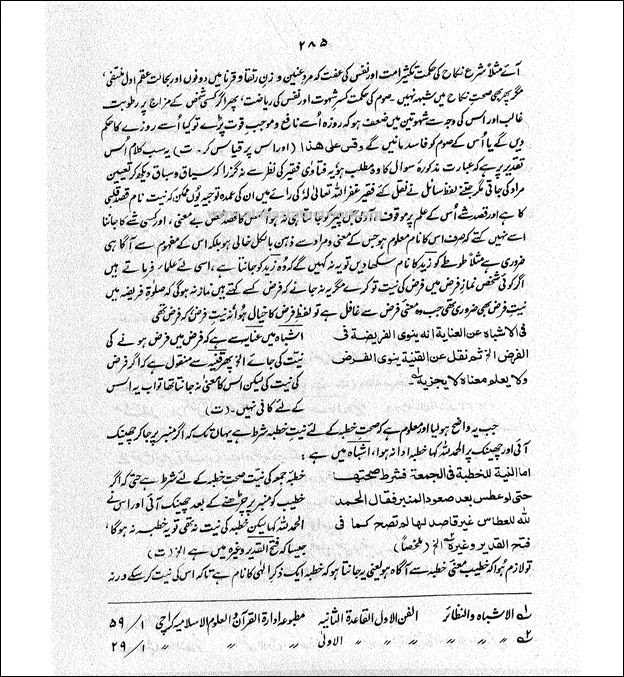 ۲۸۵
آئے مثلاً شرع نکاح کی حکمت تکثیر امت اور نفس کی عفت کہ مرد عنین و زنِ رتقا و قرنا میں دونوں اور بحالت عقم اول منتفی،
مگر پھر بھی صحتِ نکاح میں شبہہ نہیں۔ صوم کی حکمت کسرِ شہوت اور نفس کی ریاضت، پھر اگر کسی شخص کے مزاج پر رطوبت
غالب اور اُس کی وجہ سے شہوتین میں ضعف ہو کہ روزہ اُسے نافع و موجب قوت پڑے تو کیا اُسے روزے کا حکم
دیں گے یا اُس کے صوم کو فاسد مانیں گے وقس علی ھذا (اور اس پر قیاس کر۔ ت) یہ سب کلام اُس
تقدیر پر ہے کہ عبارت مذکورہ سوال کا وہ مطلب ہو یہ فتاوٰی فقیر کی نظر سے نہ گزرا کہ سیاق و سباق دیکھ کر تعیین
مراد کی جاتی مگر جتنے لفظ سائل نے نقل کئے فقیر غفر اللہ تعالٰی لہ کی رائے میں ان کی عمدہ توجیہ یُوں ممکن کہ نیت نام قصد قلبی
کا ہے اور قصد شے اُس کے علم پر موقوف، آدمی جس چیز کو جانتا ہی نہ ہو اُس کا قصد محض بے معنی، اور کسی شے کا جاننا
اسے نہیں کہتے کہ صرف اس کا نام معلوم ہو جس کے معنی و مراد سے ذہن بالکل خالی ہو بلکہ اس کے مفہوم سے آگاہی
ضروری ہے مثلاً طوطے کو زید کا نام سکھا دیں تو یہ نہ کہیں گے کہ وُہ زید کو جانتا ہے، اسی لئے علماء فرماتے ہیں
اگر کوئی شخص نمازِ فرض میں فرض کی نیت تو کرے مگر یہ نہ جانے کہ فرض کسے کہتے ہیں نماز نہ ہوگی کہ صلٰوۃ فریضہ میں
نیتِ فرض بھی ضروری تھی جب وہ معنی فرض سے غافل ہے تو لفظِ فرض کا خیال ہوا نہ نیت فرض کہ فرض تھی
فی الاشباہ عن العنایۃ انہ ینوی الفریضۃ فی اشباہ میں عنایہ سے ہے کہ فرض میں فرض ہونے کی
الفرض الخ ثم نقل عن القنیۃ ینوی الفرض نیت کی جائے الخ پھر قنیہ سے منقول ہے کہ اگر فرض
ولا یعلم معناہ لا یجزیہ کی نیت کی لیکن اس کا معنی نہ جانتا تھا تو اب یہ اس
کے لئے کافی نہیں۔ (ت)
جب یہ واضح ہو لیا اور معلوم ہے کہ صحتِ خطبہ کے لئے نیت خطبہ شرط ہے یہاں تک کہ اگر منبر پر جا کر چھینک
آئی اور چھینک پر الحمد للہ کہا خطبہ ادا نہ ہوا، اشباہ میں ہے:
اما النیۃ للخطبۃ فی الجمعۃ فشرط صحتھا خطبہ جمعہ کی نیت صحتِ خطبہ کے لئے شرط ہے حتی کہ اگر
حتی لو عطس بعد صعود المنبر فقال الحمد خطیب کو منبر پر چڑھنے کے بعد چھینک آئی اور اس نے
للہ للعطاس غیر قاصد لھا لم تصح کما فی الحمد للہ کہا لیکن خطبہ کی نیت نہ تھی تو خطبہ نہ ہوگا،
فتح القدیر وغیرہ الخ (ملخصا) جیسا کہ فتح القدیر وغیرہ میں ہے الخ (ت)
تو لازم ہوا کہ خطیب معنی خطبہ سے آگاہ ہو یعنی یہ جانتا ہو کہ خطبہ ایک ذکرِ الٰہی کا نام ہے تاکہ اس کی نیت کر سکے ورنہ
۱؎ الاشباہ والنظائر الفن الاول القاعدۃ الثانیہ مطبوعہ ادارۃ القرآن والعلوم الاسلامیہ کراچی ۱/ ۵۹
۲؎ ״ ״ ״ ״ ״ الاولٰی ״ ״ ״ ״ ۱/ ۲۹